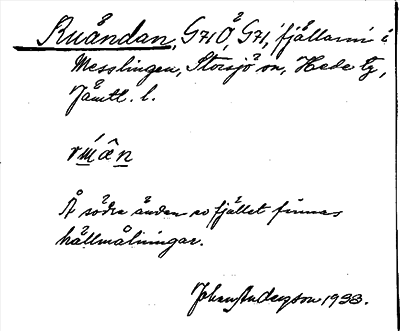 Ruåndan, G71Ö, G71, fjällarm i
Messlingen, Storsjö sn, Hede tg,
Jämtl. l.
Å södra änden av fjället finnas
hällmålningar.
1933.